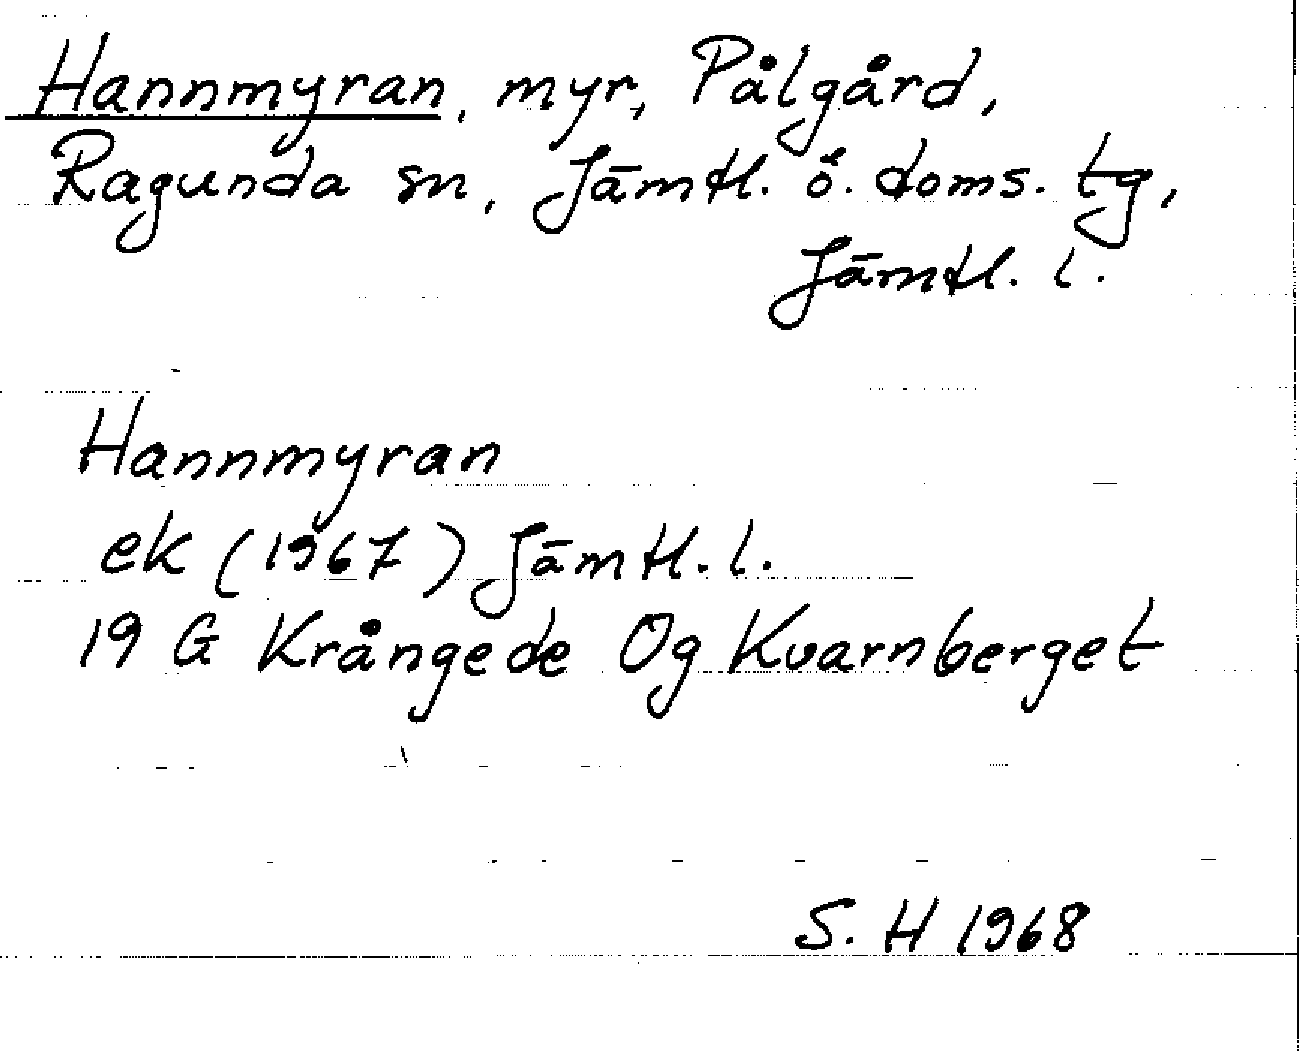 Hannmyran, myr, Pålgård,
Ragunda sn, Jämtl. ö. doms. tg,
Jämtl. l.
Hannmyran
ek (1967) Jämtl. l.
19 G Krångede Og Kvarnberget
S. H 1968